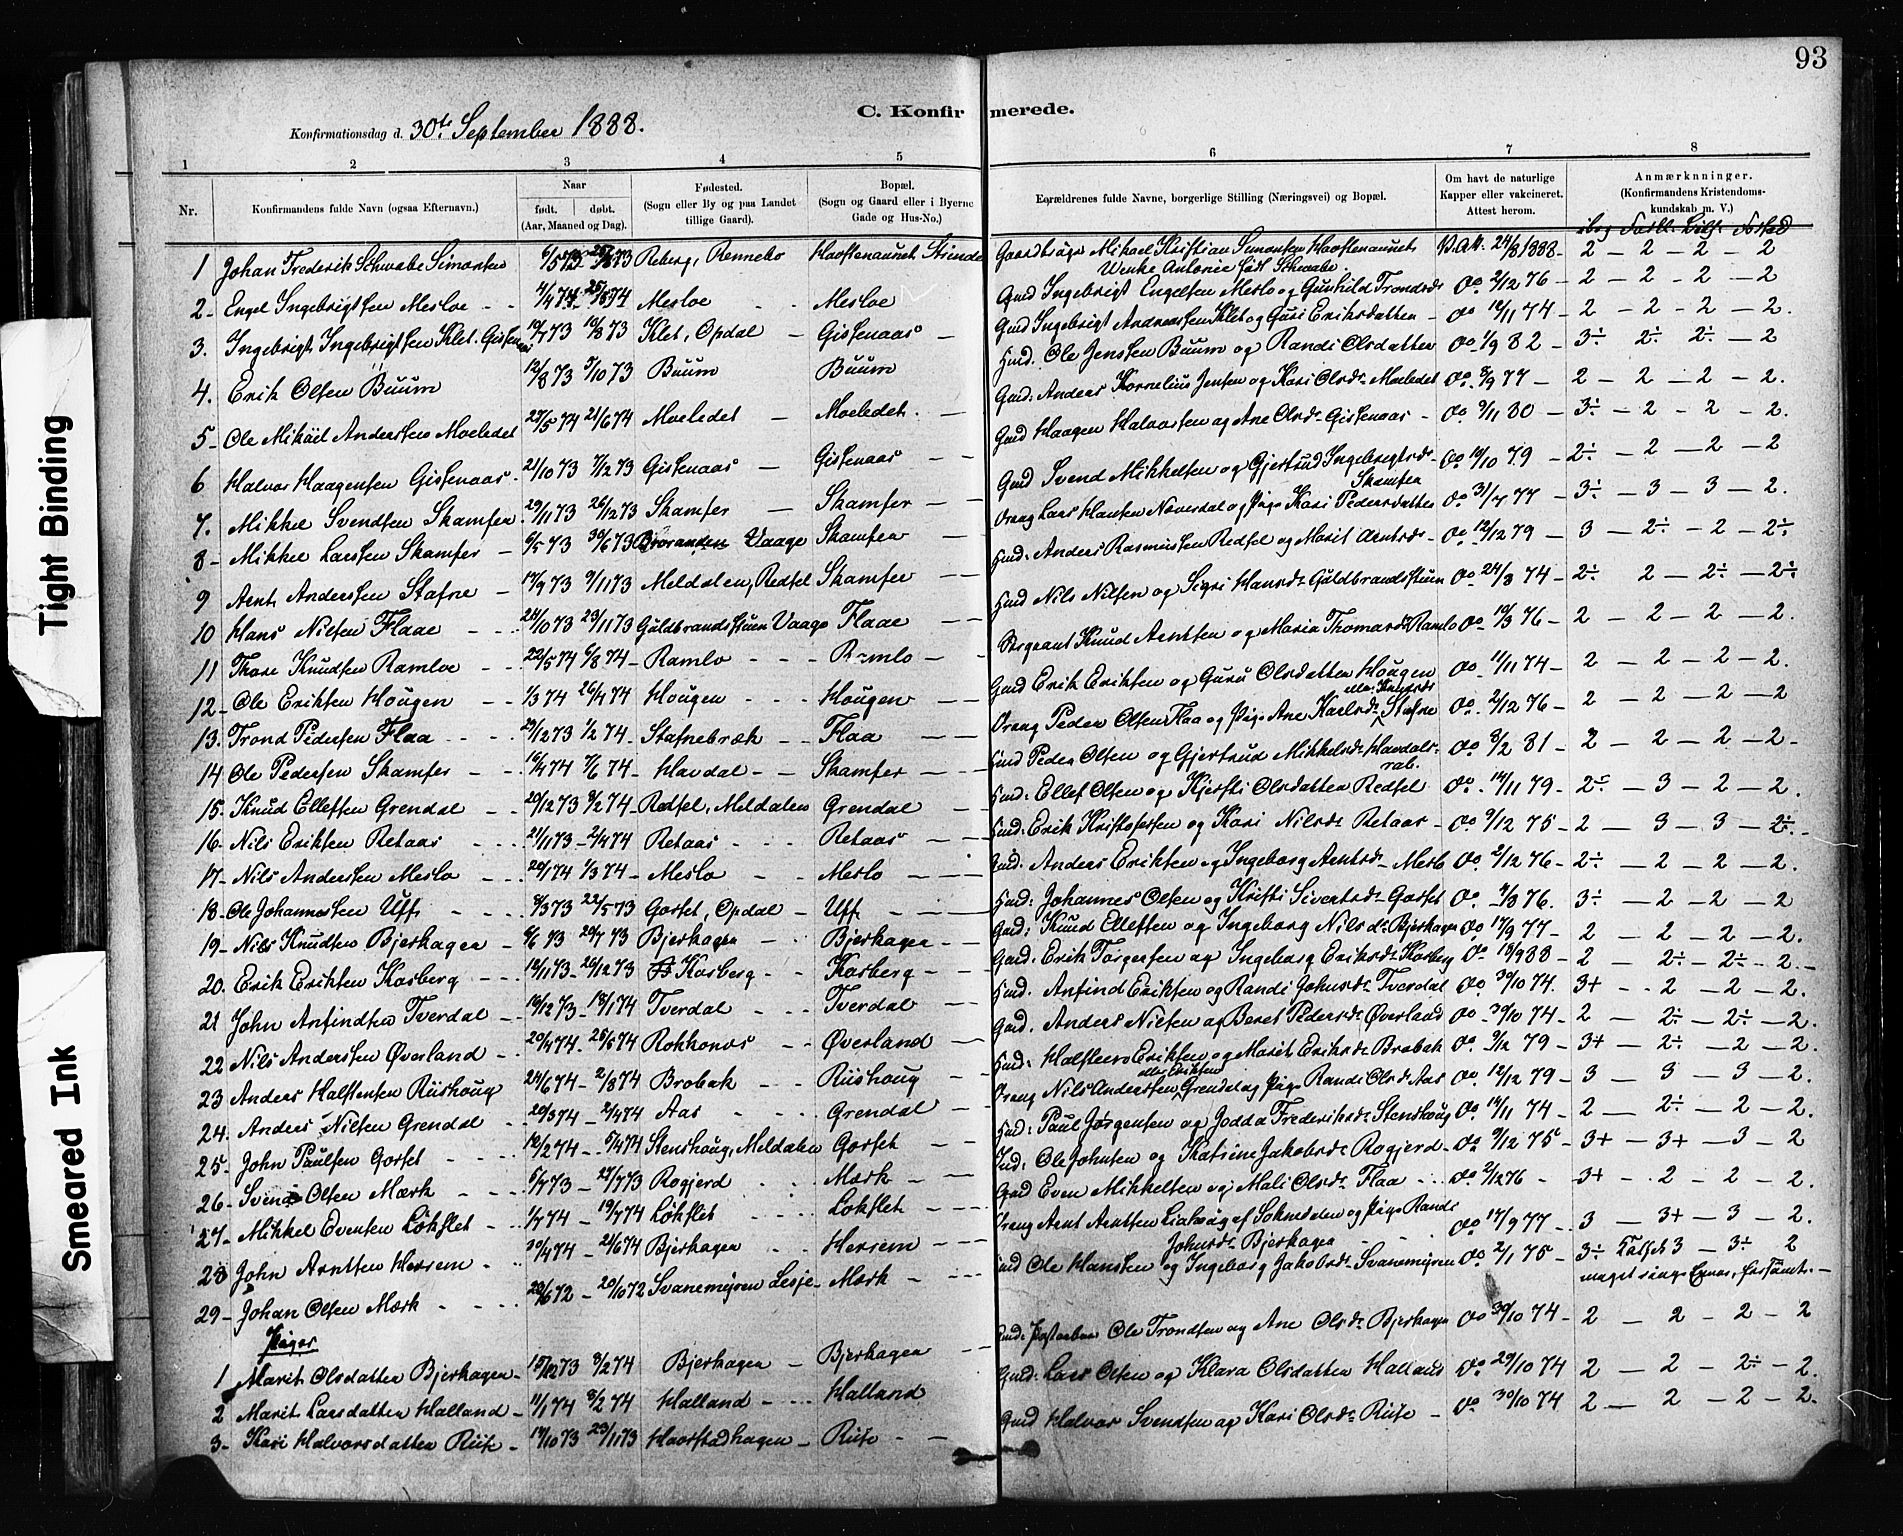 93
C. Konfirmerede.
Konfirmationsdag d. 30te September 1888.
1 2 3 4 5 6 7 8
Nr.
Konfirmandens fulde Navn (ogsaa Efternavn.)
Naar
født. døbt.
(Aar, Maaned og Dag).
Fødested.
(Sogn eller By og paa Landet
tillige Gaard).
Bopæl.
(Sogn og Gaard eller i Byerne
Gade og Hus-No.)
Forældrenes fulde Navne, borgerlige Stilling (Næringsvei) og Bopæl.
Om havt de naturlige
Kopper eller vakcineret.
Attest herom.
Anmærkninger.
(Konfirmandens Kristendoms-
kundskab m. V.)
1 Johan Frederik Schwabe Simonsen 6/5 73 73 Reberg, Rennebo Havstenaunet Strinde Gaardbruger Mikael Kristian Simonsen Havstenaunet V. Att. 24/8 1888 - 2 - 2 - 2 - 2
Wenke Antonie født Schwabe
2 - Engel Ingebrigtsen Mesloe - - 4/4 74 25/5 74 Mesloe - Mesloe Gmd Ingebrigt Engelsen Meslo og Gunhild Trondsdr Do 2/12 76 - 2 - 2 - 2 - 2
3. Ingebrigt Ingebrigtsen Klet. Gisenaas 10/7 73 10/8 73 Klet, Opdal - Gisenaas - Gmd Ingebrigt Andreassen Klet og Guri Eriksdatter - Do 12/11 74 - 2 - 2 - 2 - 2.
4. Erik Olsen Buum 12/8 73 5/10 73 Buum Buum Hmd. Ole Jensen Buum og Randi Olsdatter Do 1/9 82 - 3÷ 2÷ 2÷ - 2
5 - Ole Mikail Andersen Moeledet 27/5 74 21/6 74 Moeledet - Moeledet. - Gmd. Anders Kornelius Jensen og Kari Olsdr Moeledet Do 8/9 77 - 2 - 2 - 2 - 2.
6 Halvor Haagensen Gisenaas - 21/10 73 7/12 73 Gisenaas - Gisenaas - - Gmd Haagen Halvorsen og Ane Olsdr Gisenaas - Do 9/11 80 - 3÷ - 2 - 2 - 2.
7. Mikkel Svendsen Skamfer. 29/11 73 26/12 73 Skamfer - Skamfer - - Gmd Svend Mikkelsen og Gjertrud Ingebrigtsdr Skamfer Do 19/10 79 - 2÷ - 2 - 2 - 2
8 - Mikkel Larsen Skamfer - 6/5 73 30/6 73 Vaage Skamfer - Dreng Lars Hansen Næverdal og Pige Kari Pedersdatter Do 31/7 77 - 3÷ - 3 - 3 - 2.
9 Arnt Andersen Stafne - 17/9 73 9/11 73 Meldalen, Redsel Skamfer - - Hmd. Anders Rasmussen Redsel og Marit Arntsdr - Do 12/12 79 - 3 - 2÷ - 2 - 2÷
10 Hans Nilsen Flaae - - 24/10 73 23/11 73 Guldbrandstuen Vaage Flaae - - Hmd Nils Nilsen og Sigri Hansdr Guldbrandstuen Do 24/3 74 - 2÷ 2 - 2÷ - 2÷
11 Thore Knudsen Ramloe - - 22/5 74 6/8 74 - Ramlo - - - Ramlo - - Sergeant Knud Arntsen og Maria Thomasdr Ramlo Do 19/3 76 - 2 - 2 - 2 - 2.
12 - Ole Eriksen Hougen - - 1/3 74 26/4 74 - Hougen - - - Hougen - - Gmd Erik Eriksen og Guru Olsdatter Hougen Do 11/11 74 - 2 - 2 - 2 - 2.
13. Trond Pedersen Flaa - - - 29/12 73 1/2 74 - Stafnebræk - - Flaa - - Dreng Peder Olsen Flaa og Pige Ane Karlsdr Stafne Do 2/12 76 - 2 - 2 - 2 - 2
14 Ole Pedersen Skamfer - - 16/4 74 7/6 74 - Havdal - - Skamfer - - Hmd Peder Olsen og Gjertrud Mikkelsdr Havdals- Do 8/2 81 - 2 - 2 - 2 - 2 -
15. Knud Ellefsen Grendal - - 20/12 73 8/2 74 - Redsel, Meldalen Grendal - - Hmd. Ellef Olsen og Kjersti Olsdatter Redsel Do. 14/11 79 - 2÷ - 3 - 2 - 2.
16 - Nils Eriksen Retaas - - - 21/11 73 - 2/4 74 Retaas - - - Retaas - - Hmd. Erik Kristofersen og Kari Nilsdr Retaas - Do 9/12 75 - 2 - 3 - 3 - 2÷.
17 - Nils Andersen Meslo - - 20/1 74 1/3 74 - Meslo - - Meslo - - - Gmd. Anders Eriksen og Ingeborg Arntsdr Meslo Do 2/12 76 - 2÷ - 2 - 2 - 2.
18 - Ole Johannessen Uff. - - - 8/3 73 22/5 73 Gorset, Opdal - Uff. - - - Hmd. Johannes Olsen og Kristi Sivertsdr Gorset Do. - 4/3 76. 3÷ - 2 - 2 - 2
19 - Nils Knudsen Bjerhagen - - 6/6 73 20/7 73 Bjerhagen - - Bjerhagen - - Gmd: Knud Ellefsen og Ingeborg Nilsdr Bjerhagen Do 17/9 77 - 2 - 2 - 2 - 2.
20. Erik Eriksen Kosberg - - 18/11 73 - 26/12 73 Kosberg - - Kosberg - - Gmd. Erik Torgersen og Ingeborg Eriksdr Kosberg Do 18/9 88 - 2 - 2÷ - 2÷ - 2. -
21 John Anfindsen Tverdal - - 16/12 73 - 18/1 74 Tverdal - - - Tverdal - - Hmd. Anfind Eriksen og Randi Johnsdr Tverdal Do 30/10 74. 3+ - - 2 - 2 - 2.
22 Nils Andersen Øverland - - 20/4 74. 25/5 74 Rokkones - - Øverland - - Gmd. Anders Nilsen og Beret Pedersdr Øverland Do - 30/10 74 - 2 - 2÷ - 2÷ - 2.
23 Anders Halstensen Riishoug 24/6 74 - 2/8 74 Brobak - - - Riishoug - - Hmd. Halsteen Eriksen og Marit Eriksdr Brobak Do. 9/12 79 - 3+ - 2÷ - 2 - 2.
24. Anders Nilsen Grendal - - - 20/3 74 - 2/4 74 Aas - - - - Grendal - - Dreng Nils Andersen eller Eriksen Grendal og Pige Randi Olsdr Aas Do. 12/12 79 - 3 - 3 - 3 - 2.
25 - John Paulsen Gorset - - - - 12/2 74 - - 5/4 74 Stenshoug, Meldalen Gorset - - Hmd: Paul Jørgensen og Jodda Frederiksdr Stenshoug Do. 14/11 74 - 2 - 2÷ - 2 - 2.
26 - Svend Olsen Mærk - - - 5/7 73 - 27/7 73 Rogjerd - - - Mærk - - - Hmd: Ole Johnsen og Katrine Jakobsdr Rogjerd - Do 9/12 75 - 3+ - 3+ - 3 - 2
27 - Mikkel Evensen Løkslet - - 1/7 74 - 19/7 74 Løkslet - - - Løkslet - - - Gmd Even Mikkelsen og Mali Olsdr Flaa - - Do 2/12 76 - 3+ - 2 - 2 - 2.
28 John Arntsen Hersem - - 30/4 74 - 21/6 74 Bjerhagen - - Hersem - - - Dreng Arnt Arntsen Lialoug af Soknedalen og Pige Randi Do 17/9 77 - 3 - 3+ - 3 - 2.
Johnsdr Bjerhagen
29 - Johan Olsen Mærk - - - - 23/6 72 - 20/10 72 Svanemyren Lesje - Mærk - - - Hmd Ole Hansen og Ingeborg Jakobsdr Svanemyren Do 2/1 75 - 3÷ 3 - 3÷ 2
meget ringe Evner, forsømt. -
Piger
1 Marit Olsdatter Bjerhagen - 15/12 73 8/2 74 Bjerhagen - Bjerhagen - - Ole Trondsen og Ane Olsdr Bjerhagen Do 30/10 74 - 2 - 2 - 2 - 2
2 Marit Larsdatter Halland - 11/1 74 8/2 74 Halland - - - - Halland Gmd: Lars Olsen og Klara Olsdatter Halland Do 29/10 74 2 - 2 - 2÷ - 2.
3 - Kari Halvorsdatter Rise - 17/10 73 23/11 73 Haarstadhagen - Rise - - Gmd Halvor Svendsen og Kari Olsdr Rise - Do. 30/10 74 2 - 2 - 2 - 2.
Tight Binding
Smeared Ink